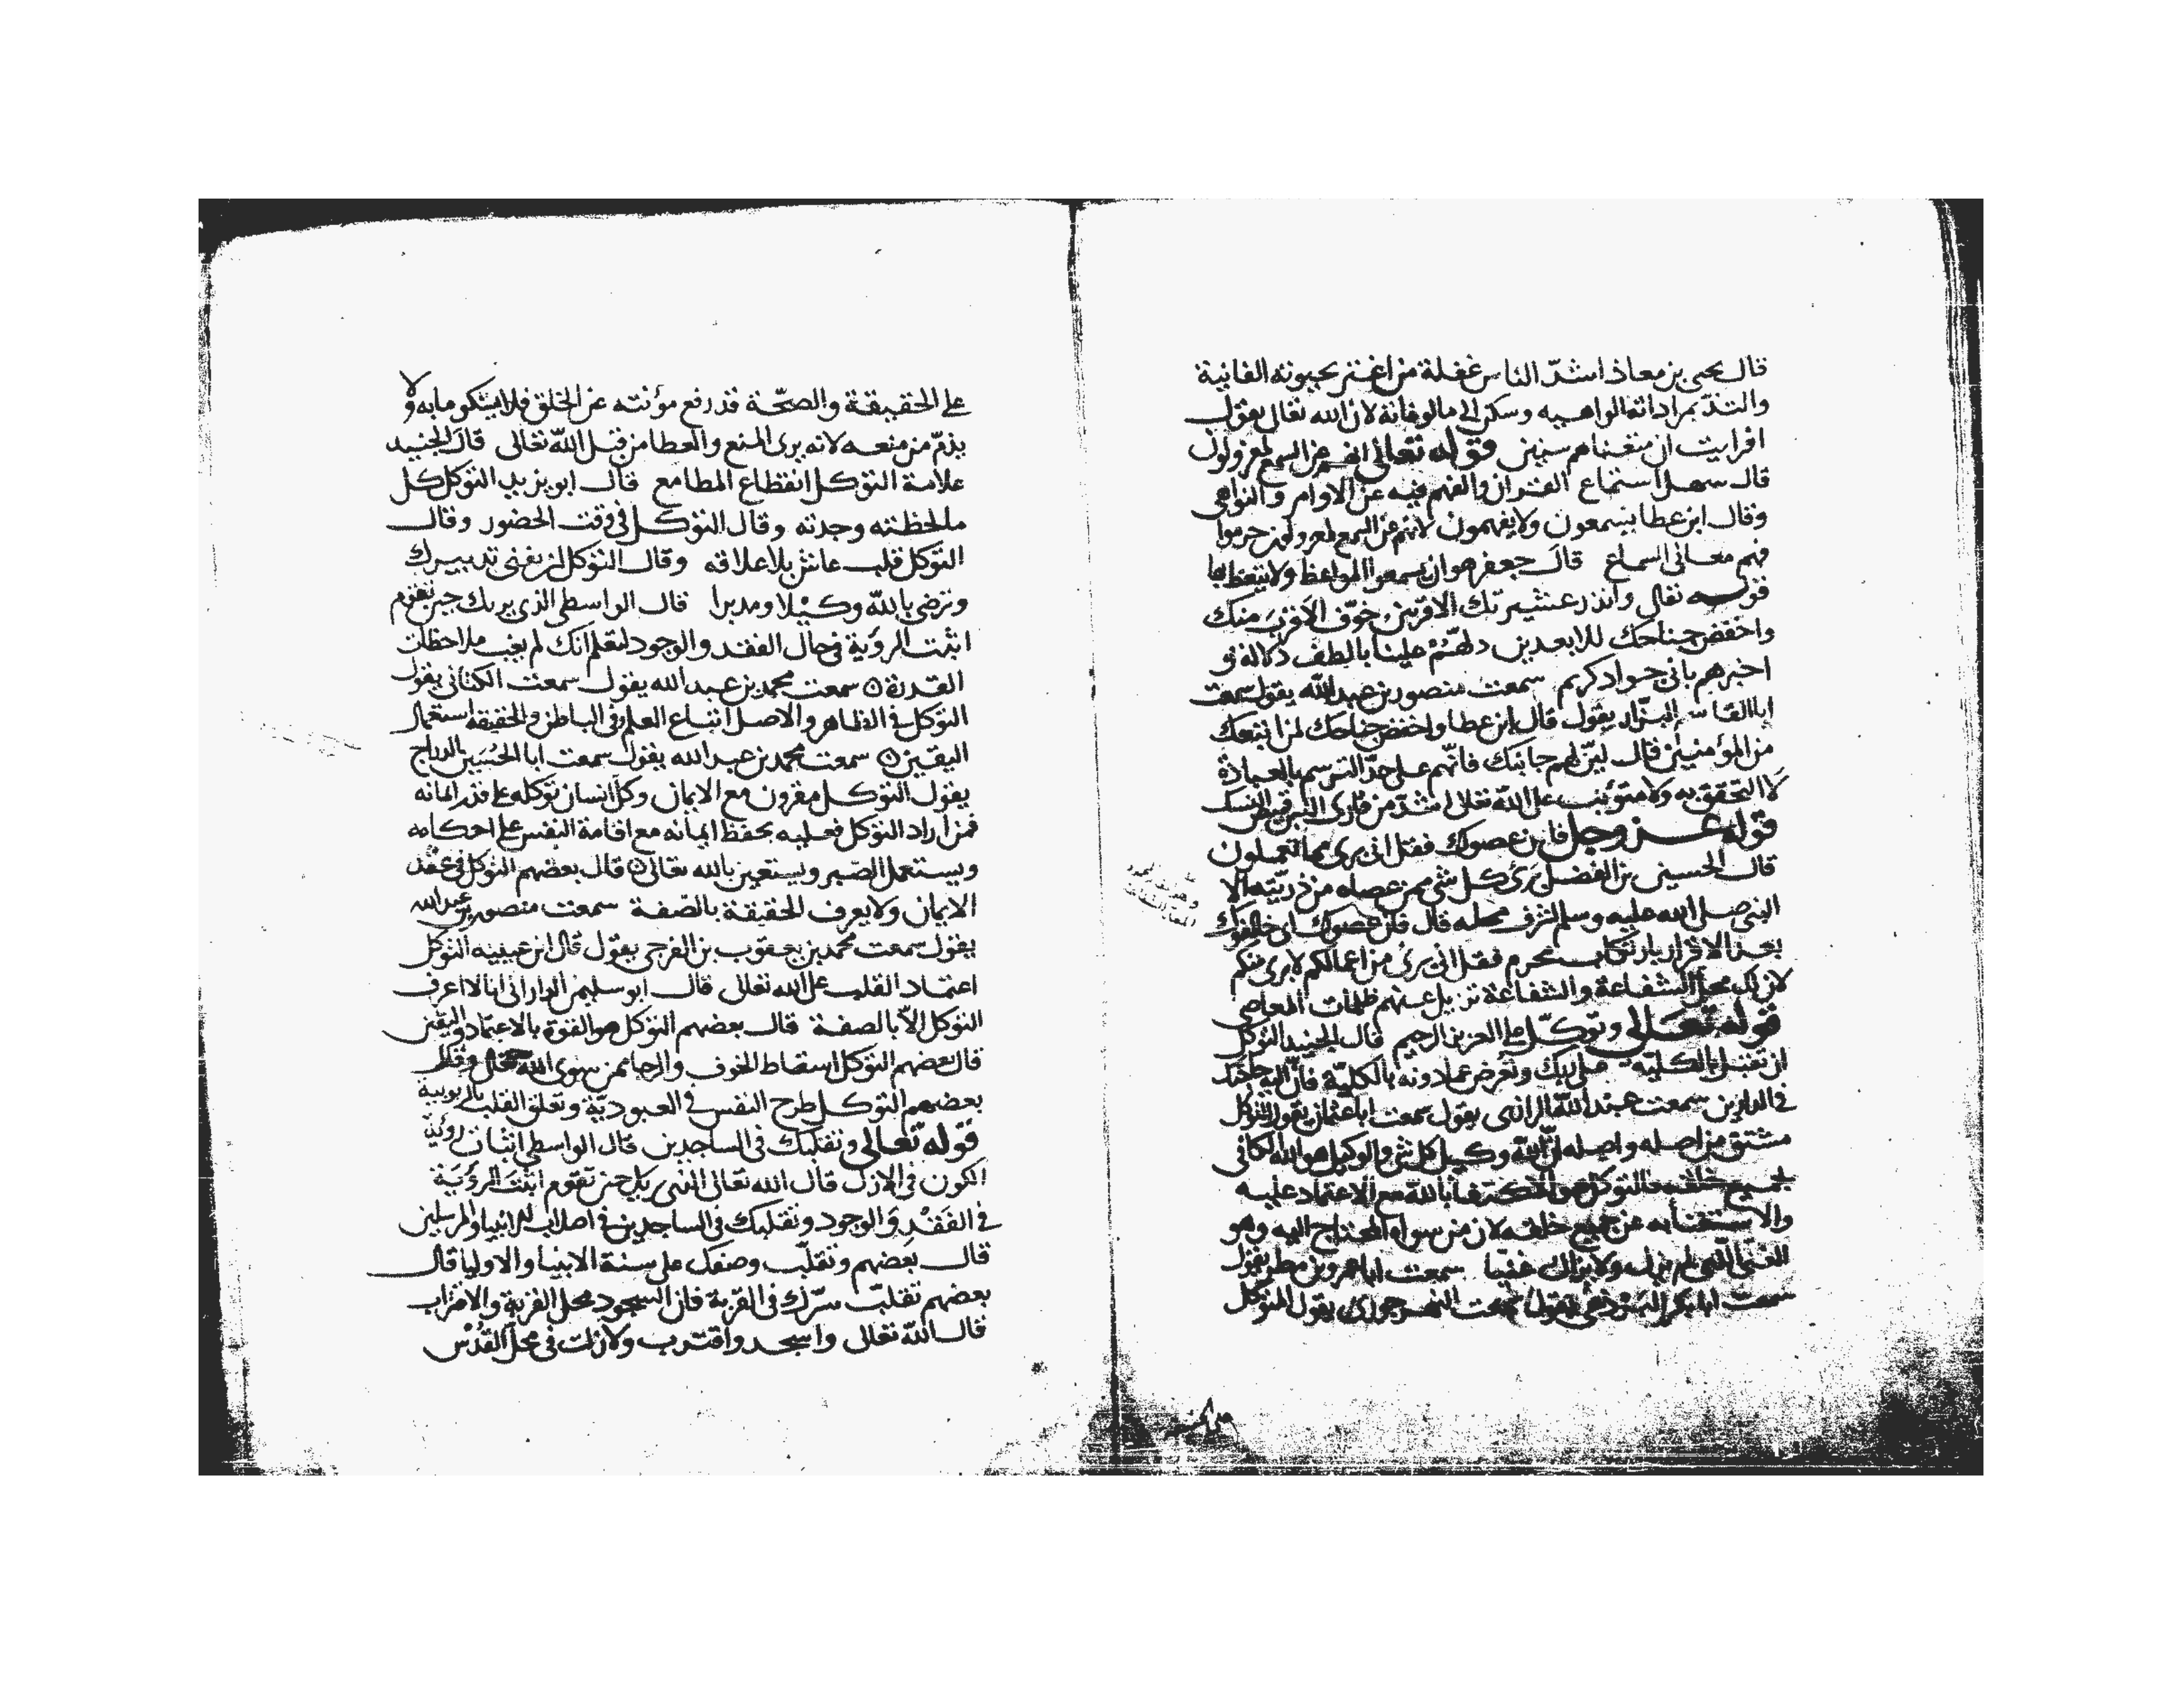 قال يحيى بن معاذ اشدّ الناس غفلة من اغتر بحيوته الفانية
والتذّ بمراداته الواهيه وسكن الى مالوفاته لان الله تعالى يقول
افرايت ان متعناهم سنين قوله تعالى انهم عن السمع لمعزولون
قال سهل استماع القران والفهم فيه عن الاوامر والنواهى
وقال ابن عطا يسمعون ولا يفهمون لانهم عن السمع لمعزولون حرموا
فهم معانى السماع قال جعفر هو ان يسمعوا المواعظ ولا يتعظ بها
قوله تعالى وانذر عشيرتك الاقربين خوّف الاقرب منك
واخفض جناحك للابعدين دلهّم علينا بالطف دلالة
اخبرهم بانى جواد كريم سمعت منصور بن عبد الله يقول سمعت
ابا القاسم البزار يقول قال ابن عطا واخفض جناحك لمن اتبعك
من المؤمنين قال ليّن لهم جانبك فانّهم على حدّ الترسم بالعبادة
لا التحقق به ولا متوثب على الله تعالى اشدّ من قارى
قوله عز وجل فان عصوك فقل انى برى مما تعملون
قال الحسين بن الفضل برى كل شى ممن عصاه من ذريّته الا
النبى صلى الله عليه وسلم لشرف محله قال فان عصوك اى خالفوك
بعد الاقرار بارتكاب محرم فقل انى برى من اعمالكم لا برى منكم
لان لك محل الشفاعة والشفاعة تزيل عنهم ظلمات المعاصى
قوله تعالى وتوكّل على العزيز الرحيم قال الجنيد التوكل
ان تقبل بالكلية على ربك وتعرض عما دونه بالكليّة فانّ اليه حاجتك
فى الدارين سمعت عبد الله الرازى يقول سمعت ابا عثمان يقول التوكل
مشتق من اصله واصله انّ الله وكيل كل شى والوكيل هو الله الكافى
لجميع خلقه فالتوكل هو الاكتفا بالله مع الاعتماد عليه
والاستغنا به عن جميع خلقه لان من سواه المحتاج اليه وهو
الغنى الذى لم يزل ولا يزال غنيا سمعت ابا عمرو بن مطر يقول
سمعت ابا بكر يقول سمعت النهرجورى يقول المتوكل
على الحقيقة والصحّة قد رفع مؤنته عن الخلق فلا يشكو ما به ولا
يذمّ من منعه لانه يرى المنع والعطا من قبل الله تعالى قال الجنيد
علامة التوكل انقطاع المطامع قال ابو يزيد التوكل كل
ما لحظته وجدته وقال التوكل فى وقت الحضور وقال
التوكل قلب عاش بلا علاقه وقال التوكل ان يفنى تدبيرك
وترضى بالله وكيلا ومدبرا قال الواسطى الذى يريك حين تقوم
اثبت الرؤية فى حال الفقد والوجود لتعلم انك لم يغب ملاحظات
القدرة ۞ سمعت محمد بن عبد الله يقول سمعت الكتانى يقول
التوكل فى الظاهر والاصل اتباع العلم وفى الباطن والحقيقة استعمال
اليقين ۞ سمعت محمد بن عبد الله يقول سمعت ابا الحسين الدراج
يقول التوكل مقرون مع الايمان وكل انسان توكله على قدر ايمانه
فمن اراد التوكل فعليه بحفظ ايمانه مع اقامة النفس على احكامه
ويستعمل الصبر ويستعين بالله تعالى ۞ قال بعضهم التوكل فى عقد
الايمان ولا يعرف الحقيقة بالصّفة سمعت منصور بن عبد الله
يقول سمعت محمد بن يعقوب بن الفرجى يقول قال ابن عيينه التوكل
اعتماد القلب على الله تعالى قال ابو سليمن الدارانى انا لا اعرف
التوكل الا بالصفة قال بعضهم التوكل هو القوة بالاعتماد واليقين
قال بعضهم التوكل اسقاط الخوف والرجا ممن سوى الله تعالى وقال
بعضهم التوكل طرح النفس فى العبوديّة وتعلق القلب بالربوبية
قوله تعالى وتقلبك فى الساجدين قال الواسطى اثبات رؤية
الكون فى الازل قال الله تعالى الذى يريك حين تقوم اثبت الرؤية
فى الفقد والوجود وتقلبك فى الساجدين فى اصلاب الانبيا والمرسلين
قال بعضهم وتقلّب وصفك على سنة الانبيا والاوليا قال
بعضهم تقلبّ سرّك فى القربة فان السجود محل القربة والاقتراب
قال الله تعالى واسجد واقترب ولا زلت فى محل القدس